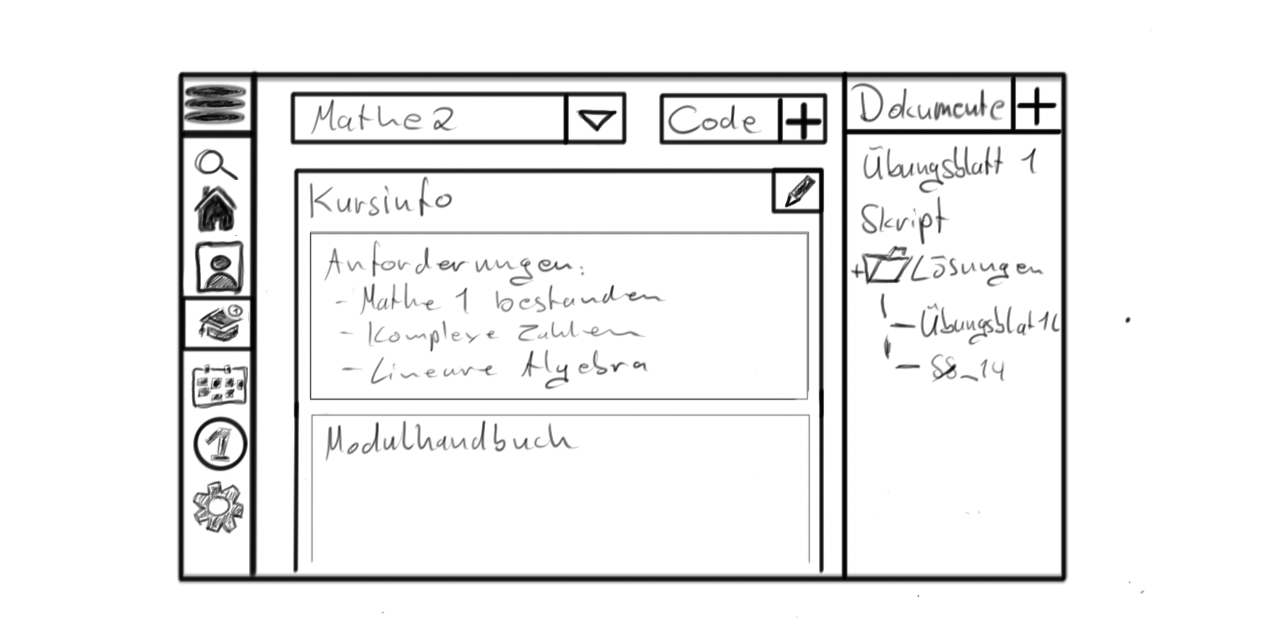 Mathe 2
Code +
Kursinfo
Anforderungen:
- Mathe 1 bestanden
- Komplexe Zahlen
- Lineare Algebra
Modulhandbuch
1
Dokumente +
Übungsblatt 1
Skript
+ Lösungen
- Übungsblat
- SS_14